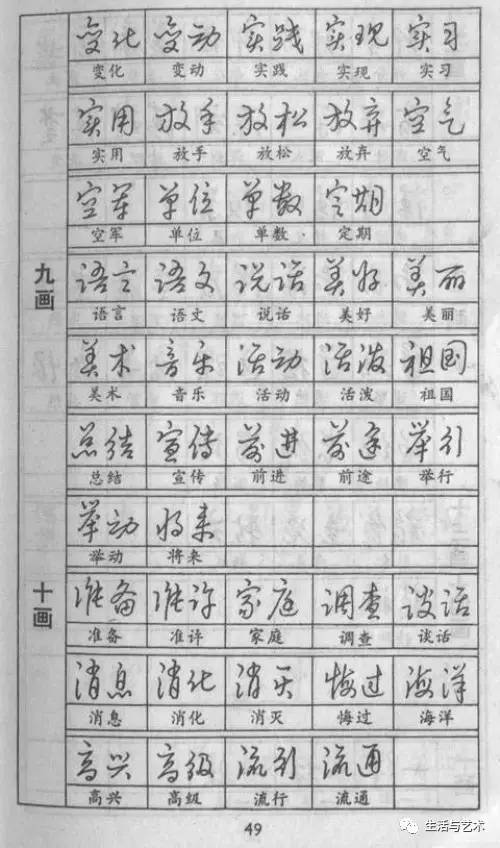 变化 变动 实践 实现 实习
变化 变动 实践 实现 实习
实用 放手 放松 放弃 空气
实用 放手 放松 放弃 空气
空军 单位 单数 定期
空军 单位 单数 定期
九画
语言 语文 说话 美好 美丽
语言 语文 说话 美好 美丽
美术 音乐 活动 活泼 祖国
美术 音乐 活动 活泼 祖国
总结 宣传 前进 前途 举行
总结 宣传 前进 前途 举行
举动 将来
举动 将来
十画
准备 准许 家庭 调查 谈话
准备 准许 家庭 调查 谈话
消息 消化 消灭 悔过 海洋
消息 消化 消灭 悔过 海洋
高兴 高级 流行 流通
高兴 高级 流行 流通
49
生活与艺术